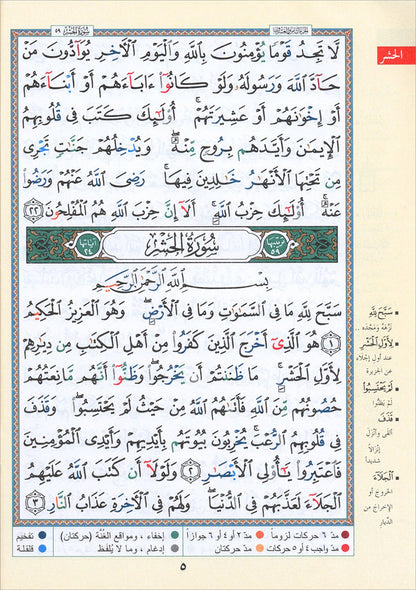 سُورَةُ الحَشْر ٥٩
الحشر
لَّا تَجِدُ قَوْمًا يُؤْمِنُونَ بِاللَّهِ وَالْيَوْمِ الْآخِرِ يُوَادُّونَ مَنْ
حَادَّ اللَّهَ وَرَسُولَهُ وَلَوْ كَانُوا ءَابَاءَهُمْ أَوْ أَبْنَاءَهُمْ
أَوْ إِخْوَانَهُمْ أَوْ عَشِيرَتَهُمْ ۚ أُولَٰئِكَ كَتَبَ فِي قُلُوبِهِمُ
الْإِيمَٰنَ وَأَيَّدَهُم بِرُوحٍ مِّنْهُ ۖ وَيُدْخِلُهُمْ جَنَّٰتٍ تَجْرِي
مِن تَحْتِهَا الْأَنْهَٰرُ خَٰلِدِينَ فِيهَا ۚ رَضِيَ اللَّهُ عَنْهُمْ وَرَضُوا
عَنْهُ ۚ أُولَٰئِكَ حِزْبُ اللَّهِ ۚ أَلَا إِنَّ حِزْبَ اللَّهِ هُمُ الْمُفْلِحُونَ ٢٢
ترتيبها ٥٩ سُورَةُ الْحَشْرِ آياتها ٢٤
بِسْمِ اللَّهِ الرَّحْمَٰنِ الرَّحِيمِ
سَبَّحَ لِلَّهِ مَا فِي السَّمَٰوَٰتِ وَمَا فِي الْأَرْضِ ۖ وَهُوَ الْعَزِيزُ الْحَكِيمُ
١ هُوَ الَّذِي أَخْرَجَ الَّذِينَ كَفَرُوا مِنْ أَهْلِ الْكِتَٰبِ مِن دِيَٰرِهِمْ
لِأَوَّلِ الْحَشْرِ ۚ مَا ظَنَنتُمْ أَن يَخْرُجُوا ۖ وَظَنُّوا أَنَّهُم مَّانِعَتُهُمْ
حُصُونُهُم مِّنَ اللَّهِ فَأَتَىٰهُمُ اللَّهُ مِنْ حَيْثُ لَمْ يَحْتَسِبُوا ۖ وَقَذَفَ
فِي قُلُوبِهِمُ الرُّعْبَ ۚ يُخْرِبُونَ بُيُوتَهُم بِأَيْدِيهِمْ وَأَيْدِي الْمُؤْمِنِينَ
فَاعْتَبِرُوا يَٰأُولِي الْأَبْصَٰرِ ٢ وَلَوْلَا أَن كَتَبَ اللَّهُ عَلَيْهِمُ
الْجَلَاءَ لَعَذَّبَهُمْ فِي الدُّنْيَا ۖ وَلَهُمْ فِي الْآخِرَةِ عَذَابُ النَّارِ ٣
سَبَّحَ لِلَّهِ
نزّهه ومجّده ..
لِأَوَّلِ الْحَشْرِ
عند أول إجلاء
عن الجزيرة
لَمْ يَحْتَسِبُوا
لم يظنّوا
قَذَفَ
ألقى وأنزل
إنزالاً
شديداً
الْجَلَاءَ
الخروج أو
الإخراج من
الديار
مدّ ٦ حركات لزوماً مدّ ٢ أو ٤ أو ٦ جوازاً إخفاء، ومواقع الغُنَّة (حركتان) تفخيم
مدّ واجب ٤ أو ٥ حركات مدّ حركتان إدغام، وما لا يُلفظ قلقلة
٥